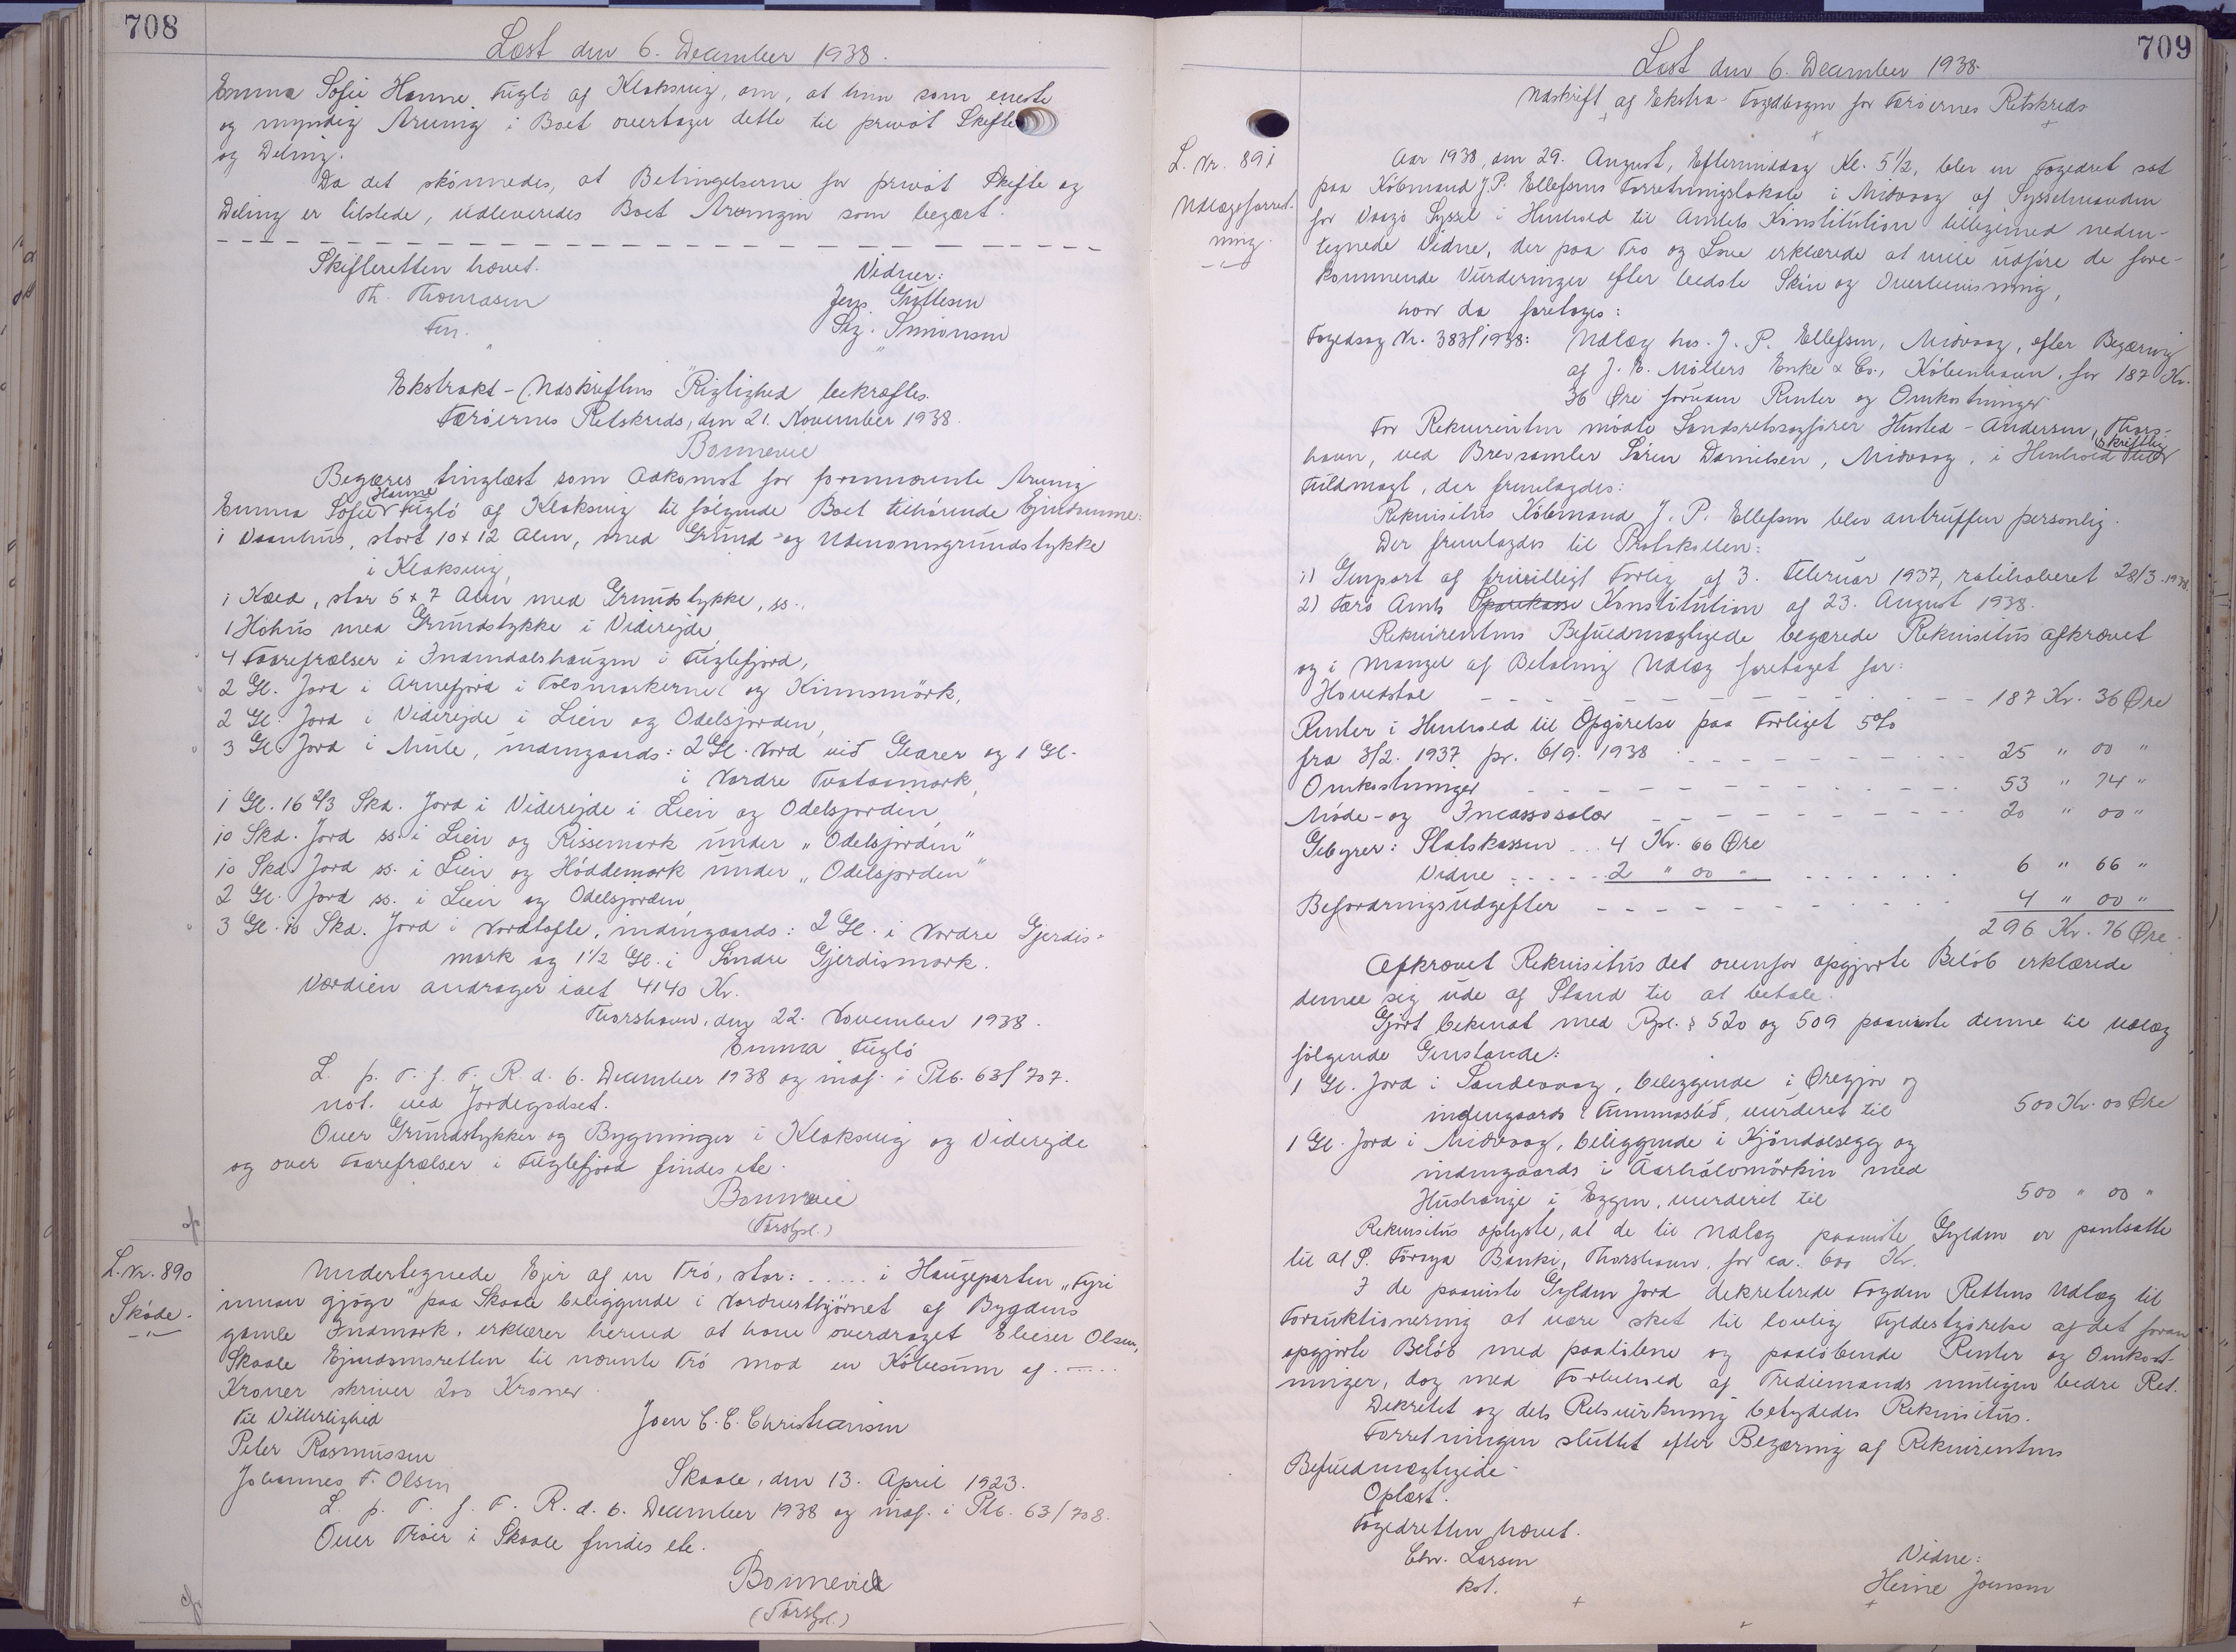 708
Læst den 6. December 1938.
Emma Sofie Hanne Fuglö af Klaksvig, om, at hun som eneste
og myndig Arving i Boet overtager dette til privat Skifte
og Deling.
Da det skönnedes, at Betingelserne for privat Skifte og
Deling er tilstede, udleveredes Boet Arvingen som begært.
Skifteretten hævet.
Vidner:
Th. Thomasen
Jens Guttesen
Fm.
Sig. Simonsen
Ekstrakt-Udskriftens Rigtighed bekræftes.
Færöernes Retskreds, den 21. November 1938.
Bonnevie
Begæres tinglæst som Adkomst for forannævnte Arving
Emma Sofie Hanne Fuglö af Klaksvig til fölgende Boet tilhörende Ejendomme:
1 Vaanhus, stort 10 x 12 Alen, med Grund- og Udenomsgrundstykke
i Klaksvig,
1 Kæld, stor 6 x 7 Alen med Grundstykke, ss.,
1 Höhus med Grundstykke i Viderejde,
4 Faarefrælser i Inamdalshaugen i Fuglefjord,
2 Gl. Jord i Arnefjord i Tolvmarkerne og Kinnsmörk,
2 Gl. Jord i Viderejde i Lien og Odelsjorden,
3 Gl. Jord i Mule, indengaards: 2 Gl. Nord vid Gearer og 1 Gl.
i Nordre Tvataamark,
1 Gl. 16 2/3 Skd. Jord i Viderejde i Lien og Odelsjorden,
10 Skd. Jord ss. i Lien og Rissemark under "Odelsjorden"
10 Skd. Jord ss. i Lien og Höddemark under "Odelsjorden"
2 Gl. Jord ss. i Lien og Odelsjorden,
3 Gl. 10 Skd. Jord i Nordtofte, indengaards: 2 Gl. i Nordre Gjerdis-
mark og 1 1/2 Gl. i Söndre Gjerdismark.
Værdien andrager ialt 4140 Kr.
Thorshavn, den 22. November 1938.
Emma Fuglö
L. p. T. f. F. R. d. 6. December 1938 og indf. i Ptb. 63/707.
not. ved Jordegodset.
Over Grundstykker og Bygninger i Klaksvig og Viderejde
og over Faarefrælser i Fuglefjord findes ell.
Bonnevie
(Forsgsl.)
L. Nr. 890
Skøde.
Undertegnede Ejer af en Tró, stor: ..... i Haugeparten "Fyri
innan gjógv" paa Skaale beliggende i Nordvesthjörnet af Bygdens
gamle Indmark, erklærer herved at have overdraget Elieser Olsen,
Skaale Ejendomsretten til nævnte Tró mod en Köbesum af ----
Kroner skriver 200 Kroner.
Til Vitterlighed
Joen C. C. Christiansen
Peter Rasmussen
Johannes F. Olsen
Skaale, den 13. April 1923.
L. p. T. f. F. R. d. 6. December 1938 og indf. i Ptb. 63/708.
Over Tróer i Skaale findes ell.
Bonnevie
(Forsgsl.)
709
Læst den 6. December 1938.
Udskrift af Ekstra-Fogedbogen for Færöernes Retskreds
L. Nr. 891
Udlægsforret-
ning.
Aar 1938, den 29. August, Eftermiddag Kl. 5 1/2, blev en Fogedret sat
paa Köbmand J. P. Ellefsens Forretningslokale i Midvaag af Sysselmanden
for Vaagö Syssel i Henhold til Amtets Konstitution tilligemed neden-
tegnede Vidne, der paa Tro og Love erklærede at ville udföre de fore-
kommende Vurderinger efter bedste Skön og Overbevisning,
hvor da foretoges:
Fogedsag Nr. 383/1938: Udlæg hos J. P. Ellefsen, Midvaag, efter Begæring
af J. E. Möllers Enke & Co., Köbenhavn, for 187 Kr.
36 Öre foruden Renter og Omkostninger
For Rekvirenten mödte Landsretssagförer Husted-Andersen, Thors-
havn, ved Brevsamler Sören Danielsen, Midvaag, i Henhold til skriftlig
Fuldmagt, der fremlagdes:
Rekvisitus Köbmand J. P. Ellefsen blev antruffen personlig.
Der fremlagdes til Protokollen:
1) Genpart af frivilligt Forlig af 3. Februar 1937, ratihaberet 28/3 1938
2) Færö Amts Sparekasse Konstitution af 23. August 1938.
Rekvirentens Befuldmægtigede begærede Rekvisitus afkrævet
og i Mangel af Betaling Udlæg foretaget for:
Hovedstol 187 Kr. 36 Øre
Renter i Henhold til Opgörelse paa Forliget 5%
fra 3/2. 1937 pr. 6/9. 1938 25 " 00 "
Omkostninger 53 " 74 "
Möde- og Incassosalær 20 " 00 "
Gebyrer: Statskassen ... 4 Kr. 66 Øre
Vidne ..... 2 " 00 " 6 " 66 "
Befordringsudgifter 4 " 00 "
296 Kr. 76 Øre.
Afkrævet Rekvisitus det ovenfor opgjorte Belöb erklærede
denne sig ude af Stand til at betale.
Gjort bekendt med Rpl. § 520 og 509 paaviste denne til Udlæg
fölgende Genstande:
1 Gl. Jord i Sandevaag, beliggende i Øregjov og
indengaards i Tummastid, vurderet til 500 Kr. 00 Øre
1 Gl. Jord i Midvaag, beliggende i Kjöndalsegg og
indengaards i Aarhálvmörkin med
Hushauge i Eggen, vurderet til 500 " 00 "
Rekvisitus oplyste, at de til Udlæg paaviste Gylden er pantsatte
til A/S. Föroya Banki, Thorshavn, for ca. 600 Kr.
I de paaviste Gylden Jord dekreterede Fogden Rettens Udlæg til
Forauktionering at være sket til lovlig Fyldestgörelse af det foran
opgjorte Belöb med paalöbne og paalöbende Renter og Omkost-
ninger, dog med Forbehold af Trediemands muligen bedre Ret.
Dekretet og dets Retsvirkning betydedes Rekvisitus.
Forretningen sluttet efter Begæring af Rekvirentens
Befuldmægtigede.
Oplæst.
Fogedretten hævet.
Chr. Larsen
Vidne:
kst.
Heine Joensen